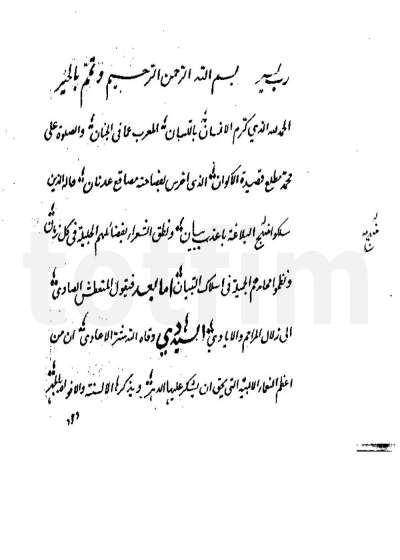 رب يسر بسم الله الرحمن الرحيم وتمم بالخير
الحمد لله الذي كرم الانسان باللسان المعرب عما في الجنان والصلوة على
محمد مطلع قصيدة الاكوان الذي اخرس بفصاحته مصاقع عدنان واله الذين
سلكوا منهج البلاغة باعذب بيان ونطق الشعراء بفضائلهم الجلية في كل زمان
ونظموا محامدهم الجميلة في اسلاك التبيان اما بعد فيقول المتعطش الصادي
الى زلال المراحم والايادي السيد هادي وقاه الله شر الاعادي ان من
اعظم النعماء الالهية التي يحق ان يشكر عليها الله ويذكرها الالسنة والافواه
totfim